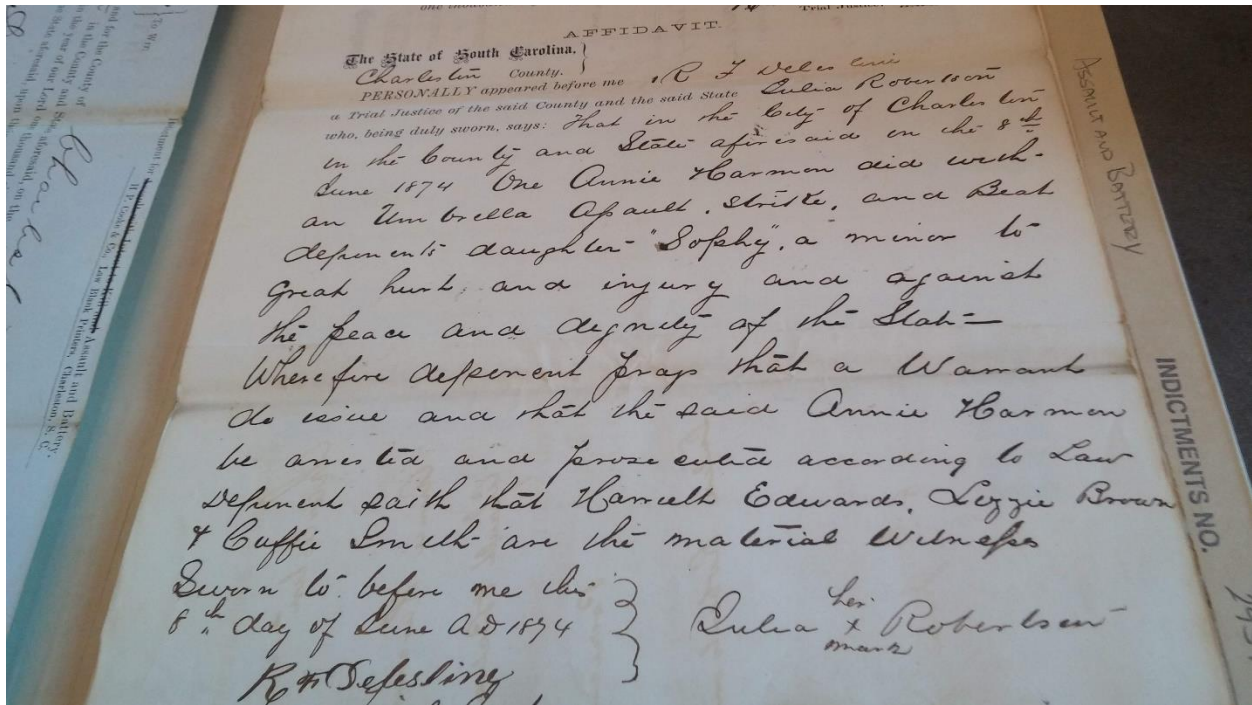 one thousand
Trial Justice,
AFFIDAVIT.
The State of South Carolina. }
Charleston County.
PERSONALLY appeared before me R F
a Trial Justice of the said County and the said State Julia Robertson
who, being duly sworn, says: That in the City of Charleston
in the County and State aforesaid on the 8th
June 1874 One Annie Harmon did with
an Umbrella Assault, Strike, and Beat
deponents daughter "Sophy", a minor to
Great hurt, and injury and against
the peace and dignity of the State
Wherefore deponent prays that a Warrant
do issue and that the said Annie Harmon
be arrested and prosecuted according to Law
Deponent saith that Harriett Edwards, Lizzie Brown
& Cuffie Smith are the material Witnesses
Sworn to before me this
8th day of June A D 1874
R F
Julia her x mark Robertson
ASSAULT AND BATTERY
INDICTMENTS NO.
To Wit:
and for the County of
in the County and State aforesaid, on the
in the year of our Lord one thousand
State aforesaid, upon th
Charles
Assault and Battery.
Law Blank Printers, Charleston, S. C.